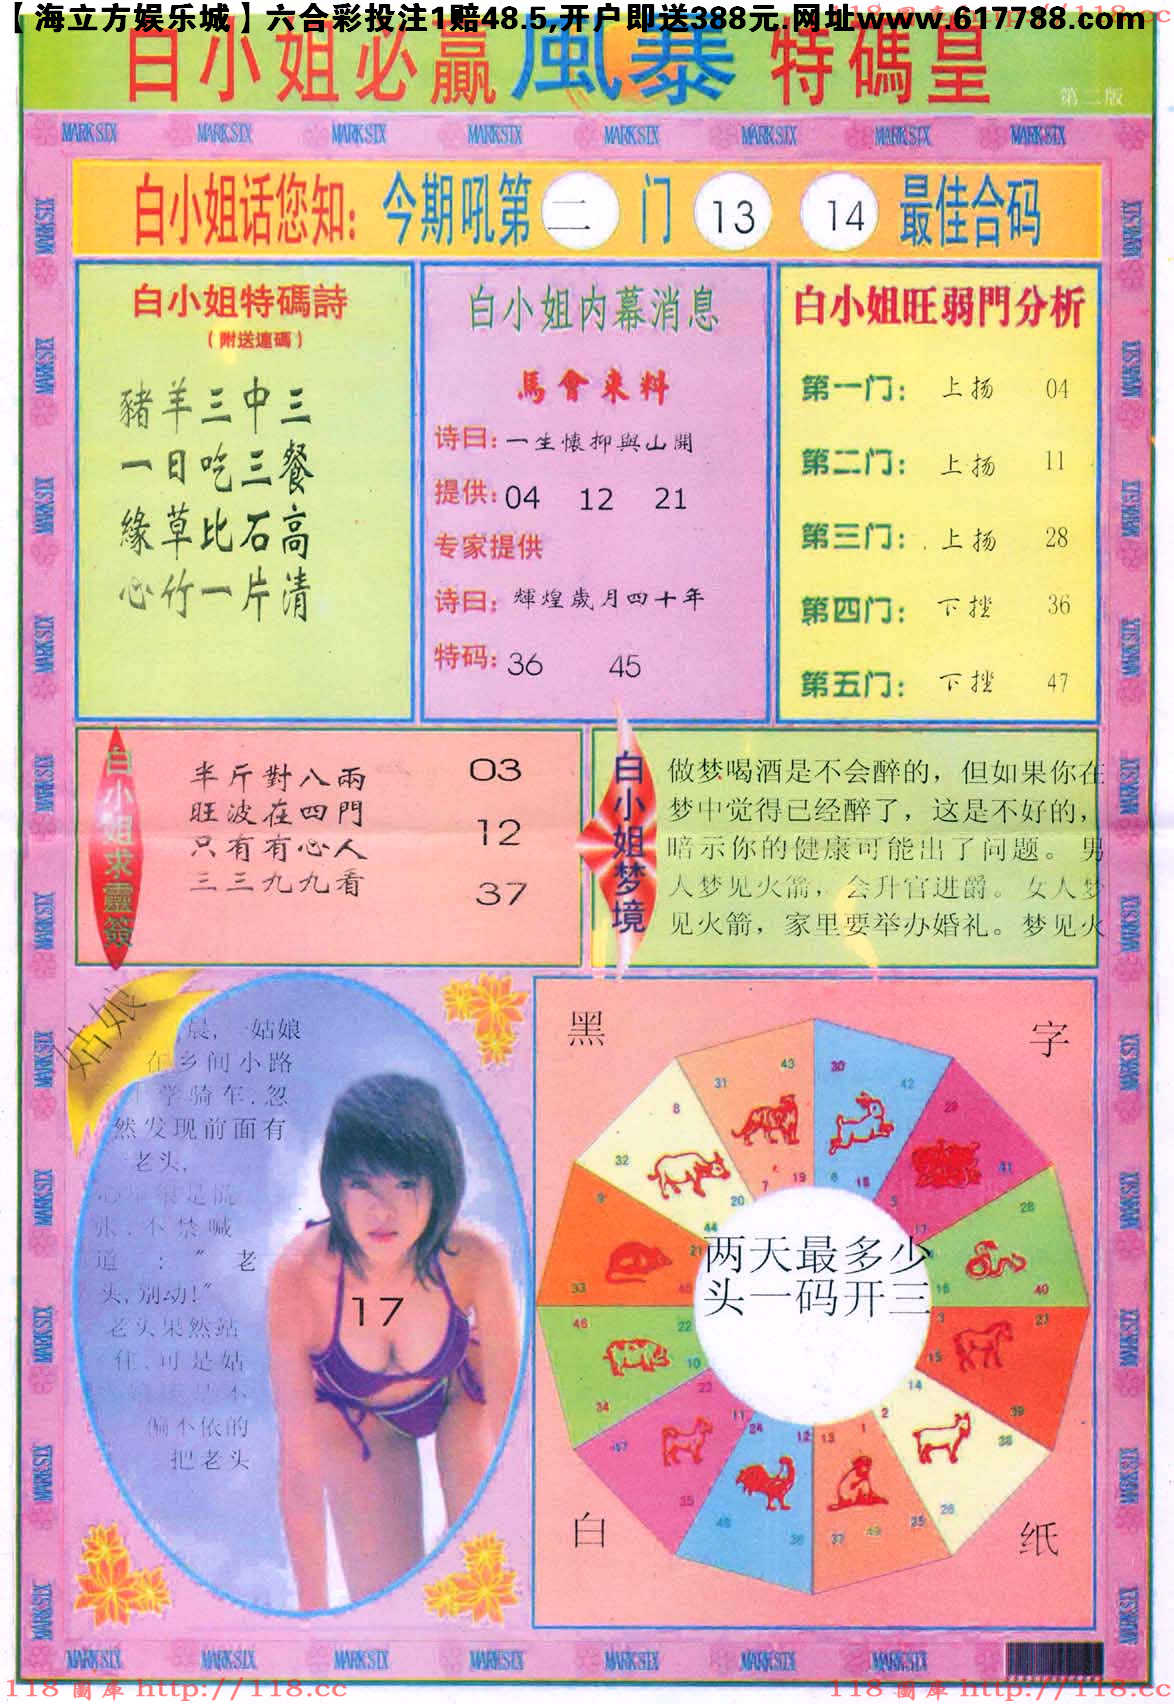 【海立方娱乐城】六合彩投注1赔48.5,开户即送388元,网址www.617788.com
白小姐必赢風暴特碼皇
第二版
MARK SIX MARK SIX MARK SIX MARK SIX MARK SIX MARK SIX MARK SIX MARK SIX
白小姐话您知：今期吼第二门 13 14 最佳合码
白小姐特碼詩
(附送連碼)
豬羊三中三
一日吃三餐
緣草比石高
心竹一片清
白小姐内幕消息
馬會來料
诗曰：一生懷抑與山開
提供：04 12 21
专家提供
诗曰：輝煌歲月四十年
特码：36 45
白小姐旺弱門分析
第一门：上扬 04
第二门：上扬 11
第三门：上扬 28
第四门：下挫 36
第五门：下挫 47
白小姐求靈簽
半斤對八兩 03
旺波在四門
只有有心人 12
三三九九看 37
白小姐梦境
做梦喝酒是不会醉的，但如果你在
梦中觉得已经醉了，这是不好的，
暗示你的健康可能出了问题。男
人梦见火箭，会升官进爵。女人梦
见火箭，家里要举办婚礼。梦见火
姑娘
晨,一姑娘
在乡间小路
学骑车.忽
然发现前面有
老头,
张.不禁喊
道:"老
头,别动!"
老头果然站
住.可是姑
偏不依的
把老头
17
黑
字
白
纸
两天最多少
头一码开三
43 31 19 7
30 42 6 18
29 41 5 17
28 40 16
27 39 3 15
38 26 14 2
1 13 25 37 49
12 24 36 48
11 23 35 47
46 34 22 10
9 33 21 45
8 32 20 44
MARK SIX MARK SIX MARK SIX MARK SIX MARK SIX MARK SIX MARK SIX MARK SIX
118 圖庫 http://118.cc
118 圖庫 http://118.cc